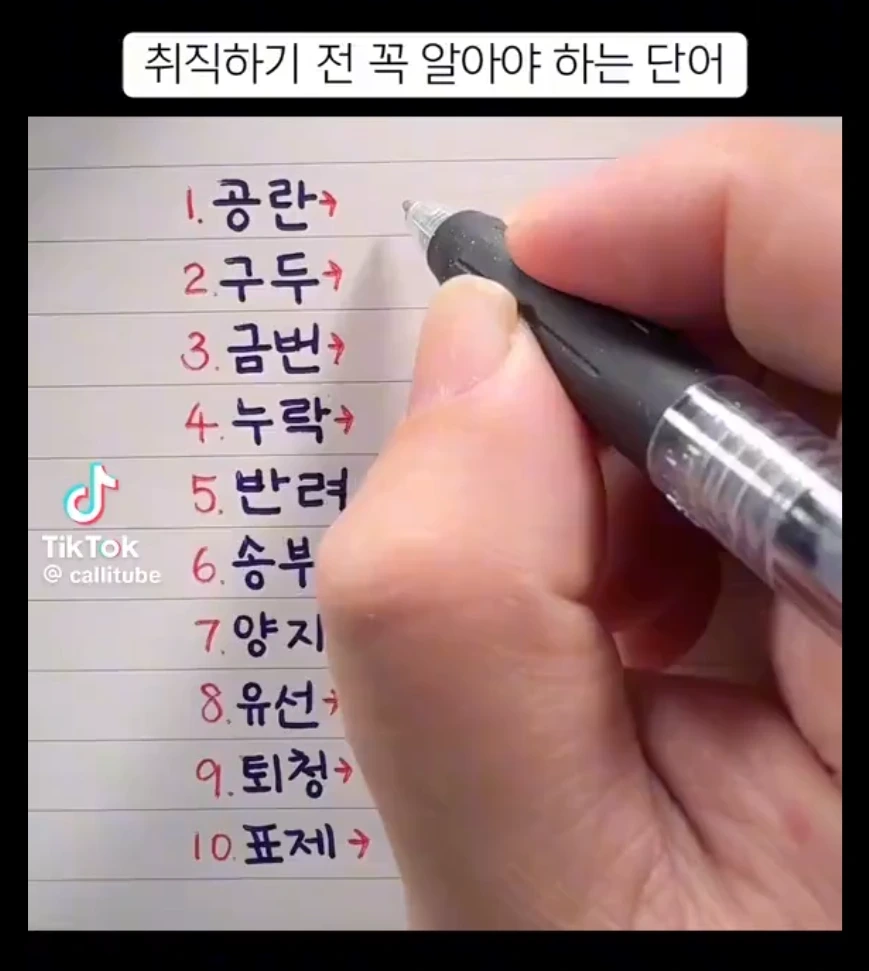 취직하기 전 꼭 알아야 하는 단어
1. 공란→
2. 구두→
3. 금번→
4. 누락→
5. 반려
6. 송부
7. 양지
8. 유선→
9. 퇴청→
10. 표제→
TikTok
@ callitube